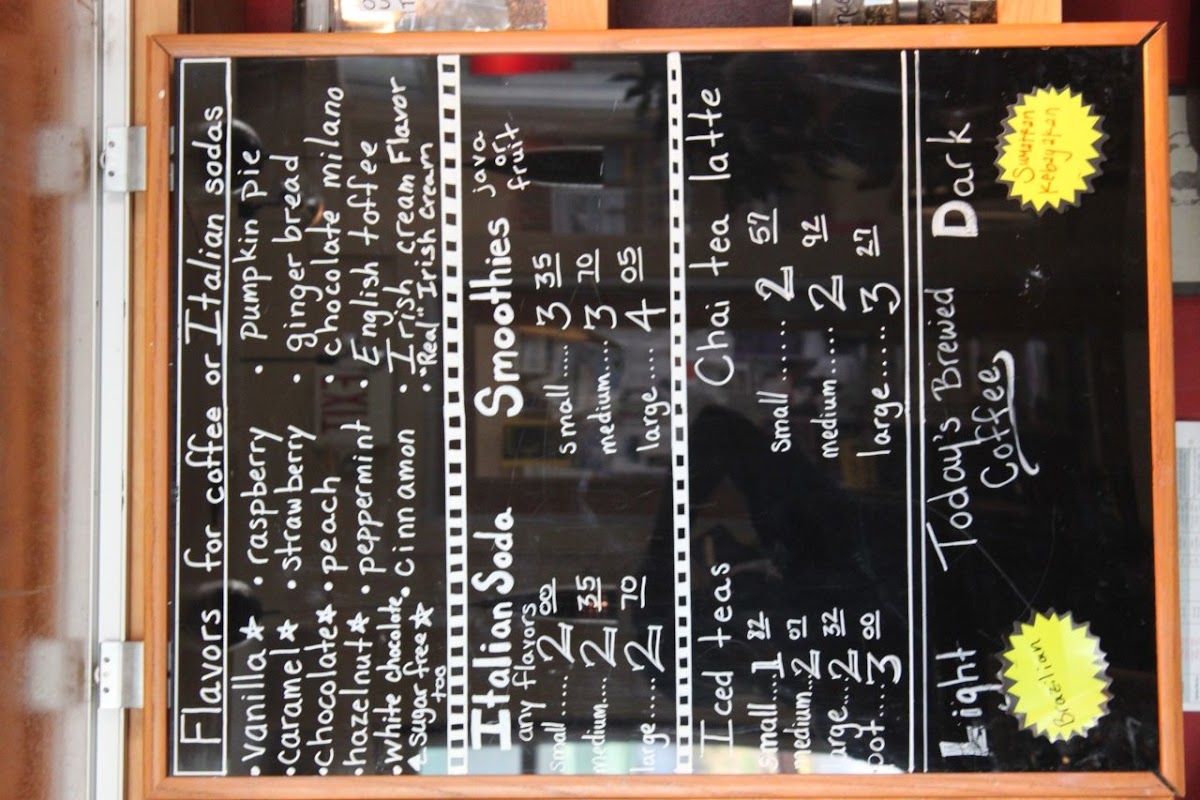 Flavors for coffee or Italian sodas
• vanilla ☆ • raspberry • pumpkin pie
• caramel ☆ • strawberry • ginger bread
• chocolate ☆ • peach • chocolate milano
• hazelnut ☆ • peppermint • English toffee
• white chocolate • cinnamon • Irish cream Flavor
☆ sugar free ☆ too • "Real" Irish cream
Italian Soda
any flavors
small...... 2 00
medium.... 2 35
large...... 2 70
Smoothies java or fruit
small..... 3 35
medium.... 3 70
large .... 4 05
Iced teas
small....1 82
medium..2 07
large...2 32
pot....3 00
Chai tea latte
small ...... 2 57
medium ..... 2 92
large.....3 27
Light Today's Brewed Coffee Dark
Brazilian
Sumatran